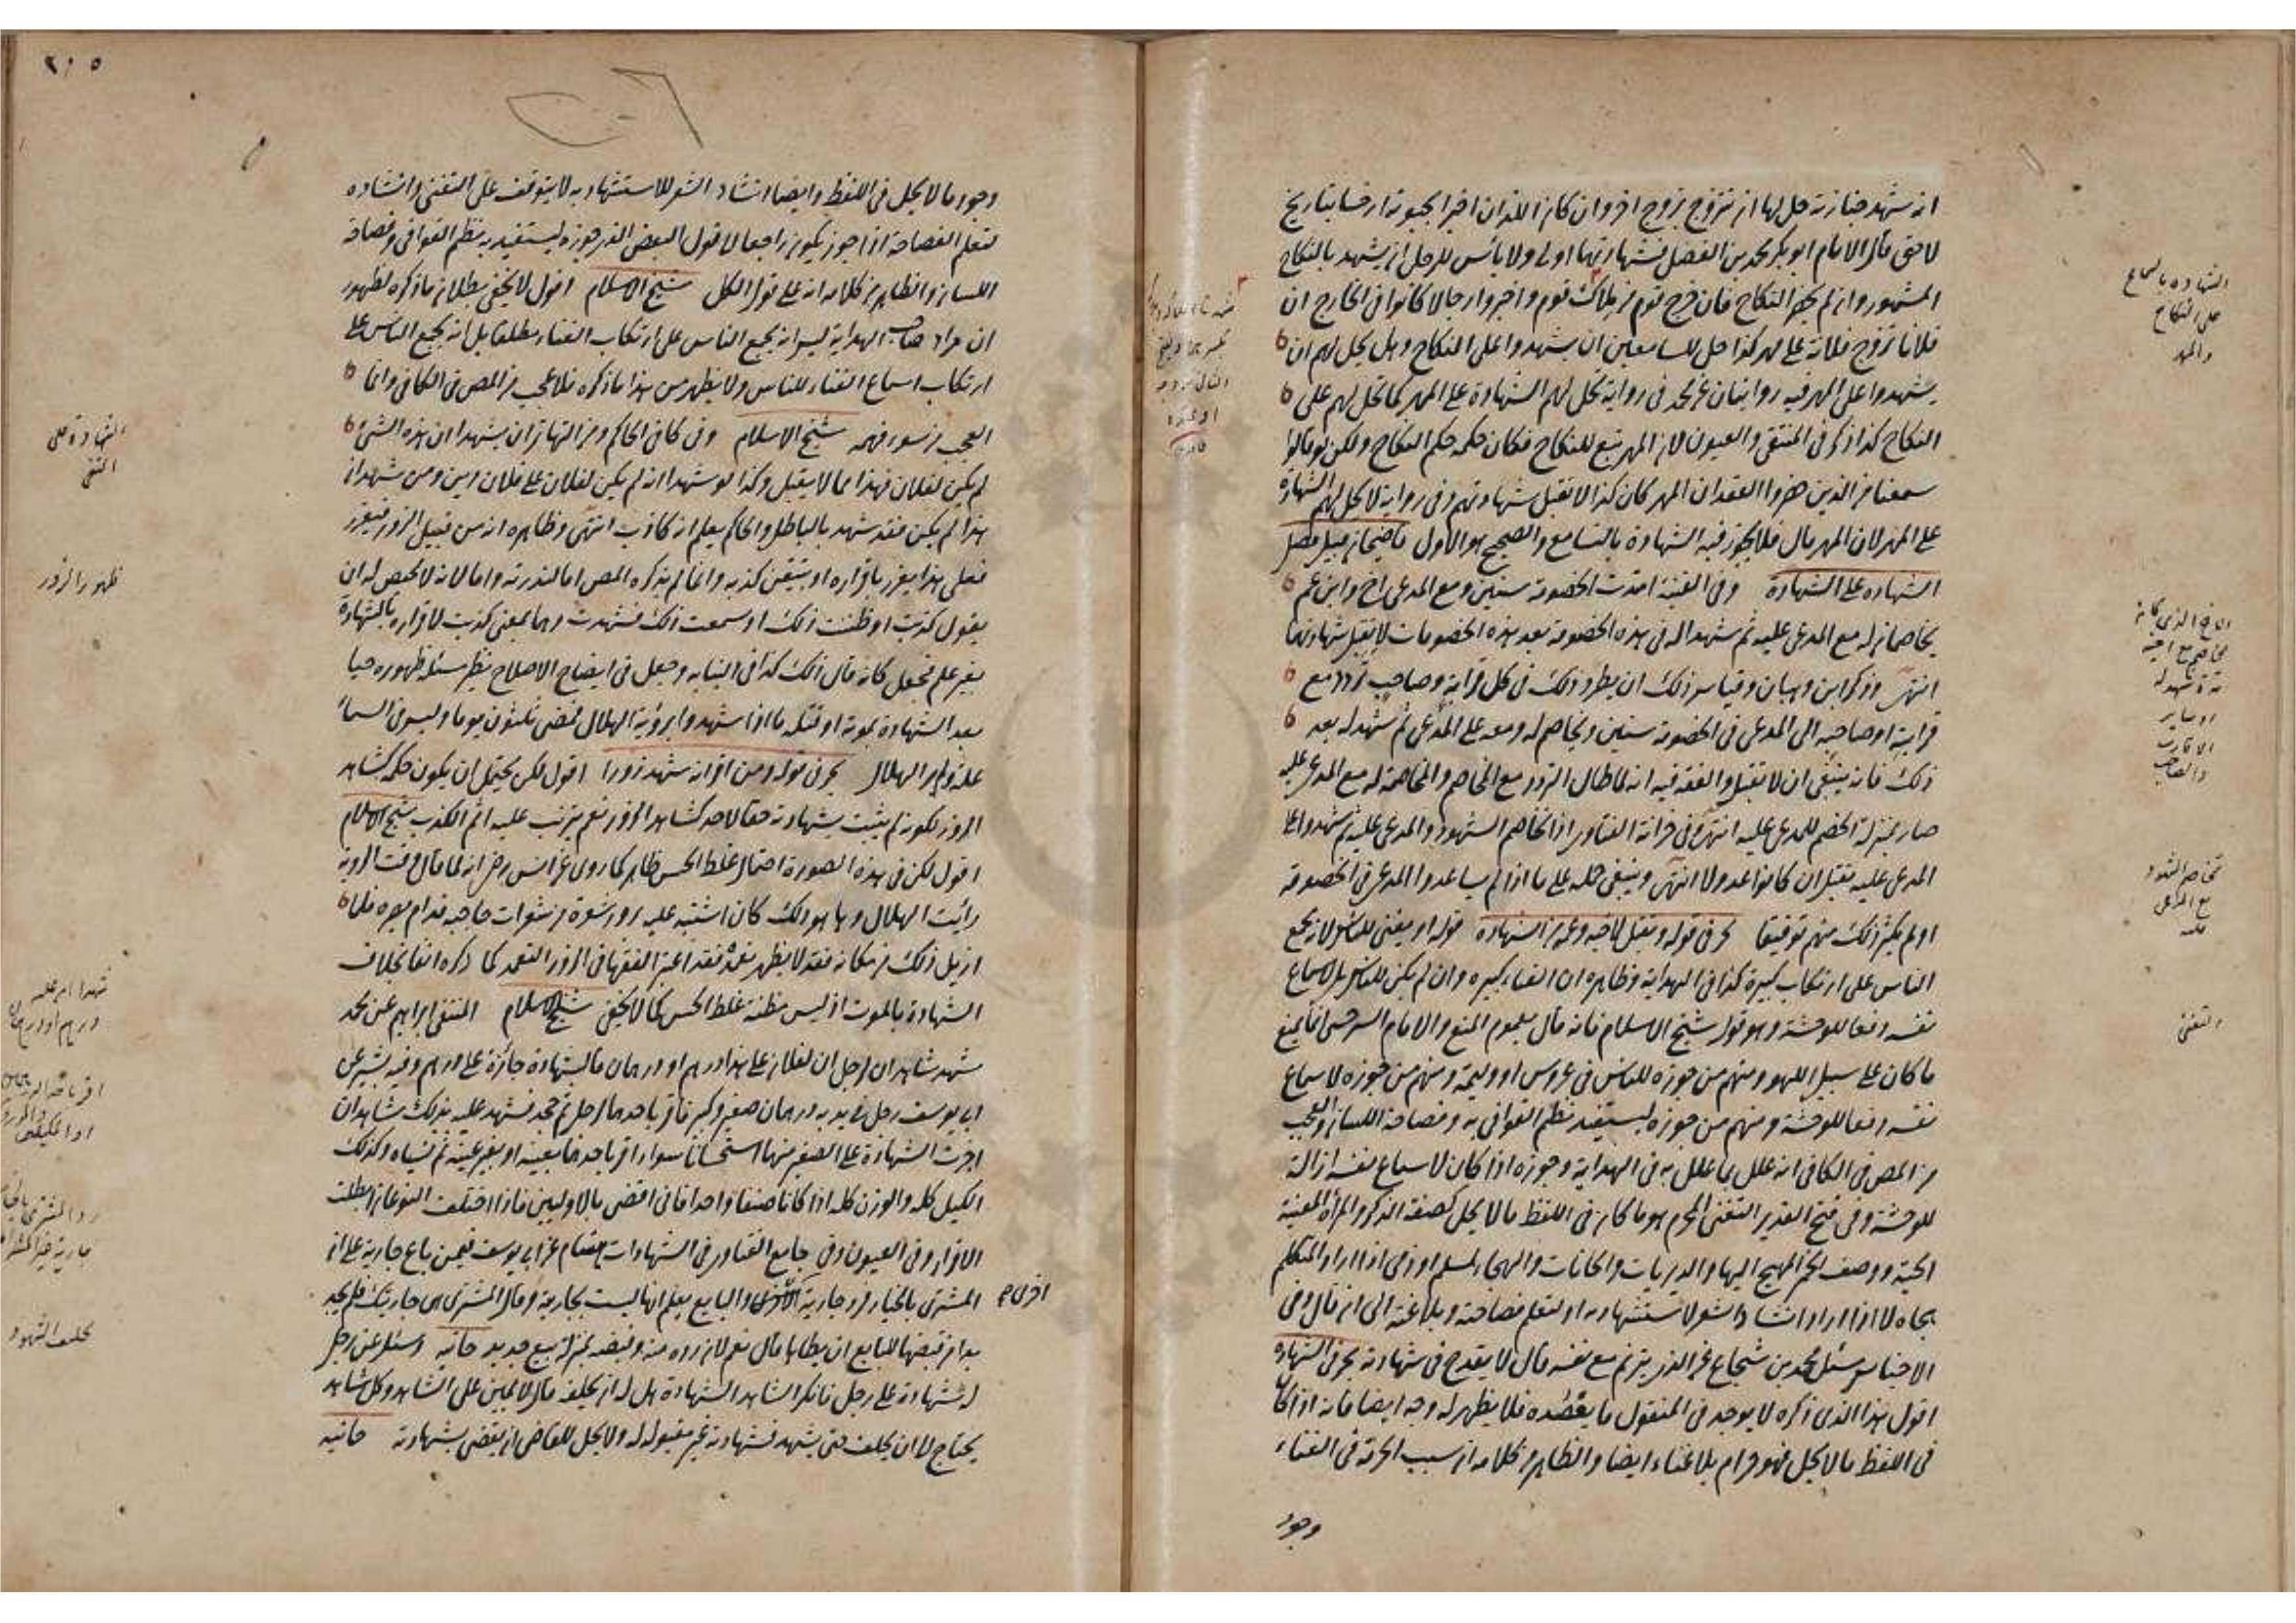 انه شهد جنازته حل لها ان تتزوج بزوج اخر وان كان اللذان اخبرا بحيوته ارخا بتاريخ
لاحق قال الامام ابو بكر محمد بن الفضل فشهادتهما اولى ولا بأس للرجل ان يشهد بالنكاح
المشهور وان لم يحضر النكاح فان خرج قوم من ملاك قوم واخبروا رجالا كانوا في الخارج ان
فلانا تزوج فلانة على مهر كذا حل للسامعين ان يشهدوا على النكاح وهل يحل لهم ان
يشهدوا على المهر فيه روايتان عن محمد في رواية تحل لهم الشهادة على المهر كما تحل لهم على
النكاح كذا ذكر في المنتقى والعيون لان المهر تبع للنكاح فكان حكمه حكم النكاح ولكن لو قالوا
سمعنا من الذين حضروا العقد ان المهر كان كذا لا تقبل شهادتهم وفي رواية لا تحل لهم الشهادة
على المهر لان المهر مال فلا يجوز فيه الشهادة بالتسامع والصحيح هو الاول قاضيخان قبيل فصل
الشهاده على الشهادة وفي القنية امتدت الخصومة سنين ومع المدعى اخ وابن عم
يخاصمان له مع المدعى عليه ثم شهدا له في هذه الخصومة بعد هذه الخصومات لا يقبل شهادتهما
انتهى وذكر ابن وهبان وقياس ذلك ان يطرد ذلك في كل قرابة وصاحب تردد مع
قرابته او صاحبه الى المدعى في الخصومة سنين ويخاصم له ومعه على المدعى ثم شهد له بعد
ذلك فانه ينبغي ان لا تقبل والفقه فيه انه لما طال التردد مع المخاصم والمخاصمة له مع المدعى عليه
صار بمنزلة الخصم للمدعى عليه انتهى وفي خزانة الفتاوى اذا تخاصم الشهود والمدعى عليه ثم شهدوا على
المدعى عليه تقبل ان كانوا عدولا انتهى وينبغي حمله على ما اذا لم يساعدوا المدعى في الخصومة
او لم يكثر ذلك منهم توفيقا بحر في قوله وتقبل لاخيه وعمه من الشهادة قوله او يغني للناس لانه يجمع
الناس على ارتكاب كبيرة كذا في الهداية وظاهره ان الغناء كبيرة وان لم يكن للناس بل لاسماع
نفسه دفعا للوحشة وهو قول شيخ الاسلام فانه قال بعموم المنع والامام السرخسي انما يمنع
ما كان على سبيل اللهو ومنهم من جوزه للناس في عروس او وليمة ومنهم من جوزه لاسماع
نفسه دفعا للوحشة ومنهم من جوزه ليستفيد نظم القوافي به وفصاحة اللسان والعجب
من المص في الكافي انه علل بما علل به في الهداية وجوزه اذا كان لاسماع نفسه ازالة
للوحشة وفي فتح القدير التغني المحرم هو ما كان في اللفظ مالا يحل كصفة الذكر والمرأة المعينة
الحية ووصف الخمر المهيج اليها والديريات والحانات والهجاء لمسلم او ذمي اذا اراد المتكلم
هجاه لا اذا اراد انشاد الشعر لاستشهاد به او لتعلم فصاحته وبلاغته الى ان قال وفي
الاجناس وسئل محمد بن شجاع عن الذي يترنم مع نفسه قال لا يقدح في شهادته بحر في الشهادة
اقول هذا الذي ذكره لا يوجد في المنقول ما يعضده فلا يظهر له وجه ايضا فانه اذا كان
في اللفظ مالا يحل فهو حرام بلا غناء ايضا والظاهر من كلامه ان سبب الحرمة في الغناء
وجود
الشهاده بالسماع
على النكاح
والمهر
الاخ الذي كان
يخاصم مع اخيه
او ساير
الاقارب
والصاحب
تخاصم الشهود
مع المدعى
عليه
والتغني
٢١٥
وجود مالا يحل في اللفظ وايضا انشاد الشعر للاستشهاد به لا يتوقف على التغني وانشاده
لتعلم الفصاحة اذا جوز يكون راجعا لا قول البعض الذي جوزه ليستفيد به نظم القوافي وفصاحة
اللسان والظاهر من كلامه انه على قول الكل شيخ الاسلام اقول لا يخفى بطلان ما ذكره لظهور
ان مراد صاحب الهداية ليس انه يجمع الناس على ارتكاب الغناء مطلقا بل انه يجمع الناس على
ارتكاب اسماع الغناء للناس ولا يظهر من هذا ما ذكره فلا عجب من المص في الكافي وانما
العجب من سوء فهمه شيخ الاسلام وفي كافي الحاكم ومن التهاتر ان يشهدا ان هذه الشئ
لم يكن لفلان فهذا مما لا يقبل وكذا لو شهدا انه لم يكن لفلان على فلان دين ومن شهد ان
هذا لم يكن فقد شهد بالباطل والحاكم يعلم انه كاذب انتهى وظاهره انه من قبيل الزور فيعزر
فعلى هذا يعزر باقراره او بتيقن كذبه وانما لم يذكره المص اما لندرته واما لانه لا محيص له ان
يقول كذبت او ظننت ذلك او سمعت ذلك فشهدت وهما بمعنى كذبت لاقراره بالشهادة
بغير علم فجعل كانه قال ذلك كذا في البناية وجعل في ايضاح الاصلاح نظير مسئلة ظهوره حيا
بعد الشهادة بموته او قتله ما اذا شهدوا برؤية الهلال فمضى ثلثون يوما وليس في السماء
علة ولم ير الهلال بحر في قوله ومن اقر انه شهد زورا اقول لكن يحتمل ان يكون حكمه كشاهد
الزور لكونه لم يثبت بشهادته حقا لاحد كشاهد الزور نعم يترتب عليه اثم الكذب شيخ الاسلام
اقول لكن في هذه الصورة احتمال غلط الحس ظاهر كما روى عن انس رض انه لما قال وقت الرؤية
رأيت الهلال وها هو ذلك كان اشتبه عليه برؤ شعرة من شعرات حاجبه قدام بصره فلما
ازيل ذلك من مكانه فقد لا يظهر تعمده فقد اعتبر الفقها في الزور التعمد كما ذكره انفا بخلاف
الشهادة بالموت اذ ليس مظنة غلط الحس كما لا يخفى شيخ الاسلام المنتقى ابراهيم عن محمد
شهد شاهدان لرجل ان لفلان على هذا درهم او درهمان فالشهادة جائزة على درهم وفيه بشر عن
ابي يوسف رجل في يديه درهمان صغير وكبير فاقر باحدهما لرجل ثم جحد فشهد عليه بذلك شاهدان
اجزت الشهادة على الصغير منهما استحسانا سواء اقر باحدهما بعينه او بغير عينه ثم نسياه وكذلك
الكيل كله والوزن كله اذا كانا صنفا واحدا فاني اقضي بالاوليين فاذا اختلف النوعان ابطلت
الاقرار وفي العيون وفي جامع الفتاوى في الشهادات هشام عن ابي يوسف فيمن باع جارية على ان
المشترى بالخيار فرد جارية اخرى والبايع يعلم انها ليست بجاريته وقال المشترى هي جاريتك فلم يجد
بدا من قبضها للبايع ان يطاها قال نعم لان رده منه وقبضه بمنزلة بيع جديد خانيه وسئل عن رجل
له شهادة على رجل فانكر الشاهد الشهادة هل له ان يحلفه قال لا يمين على الشاهد وكل شاهد
يحتاج الا ان يحلف حتى يشهد فشهادته غير مقبوله له ولا يحل للقاضي ان يقضي بشهادته خانيه
الشهادة على
النفي
ظهور الزور
درهم او درهمان
تحليف الشهود